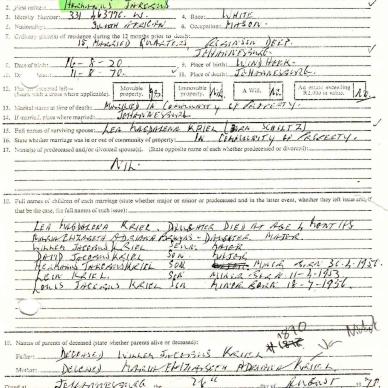 2. First names: Hermanus Jacobus
3. Identity Number: 331 463796 W. 4. Race: White
5. Nationality: South African 6. Occupation: Mason.
7. Ordinary places of residence during the 12 months prior to death:
18, Married Quarters, Robinson Deep.
Johannesburg.
8. Date of birth: 16-8-20 9. Place of birth: Windhoek.
10. Date of death: 11-8-70 11. Place of death: Johannesburg.
12. Has deceased left: Movable property. Yes Immovable property. A Will. An estate exceeding R2,000 in value.
13. Marital status at time of death: Married in Community of Property.
14. If married, place where married: Johannesburg
15. Full names of surviving spouse: Lea Magdalena Kriel (Born Scholtz)
16. State whether marriage was in or out of community of property: In Community of Property.
17. Name(s) of predeceased and/or divorced spouse(s). (State opposite name of each whether predeceased or divorced):
Nil
18. Full names of children of each marriage (state whether major or minor or predeceased and in the latter event, whether they left issue and, if
that be the case, the full names of such issue):
Lea Magdalena Kriel. Daughter Died at age 4 months
Maria Elizabeth Adriana - Daughter Major
Willem Jacobus Kriel Major
David Jacobus Kriel Son
Hermanus Jacobus Kriel Son Minor Born
Kriel. Son Minor Born 11-2-1953
Louis Jacobus Kriel Son Minor Born 18-7-1956
19. Names of parents of deceased (state whether parents alive or deceased):
Father: Deceased Willem Jacobus Kriel
Mother: Deceased Maria Elizabeth Adriana Kriel
Dated at Johannesburg the 28th August 1970